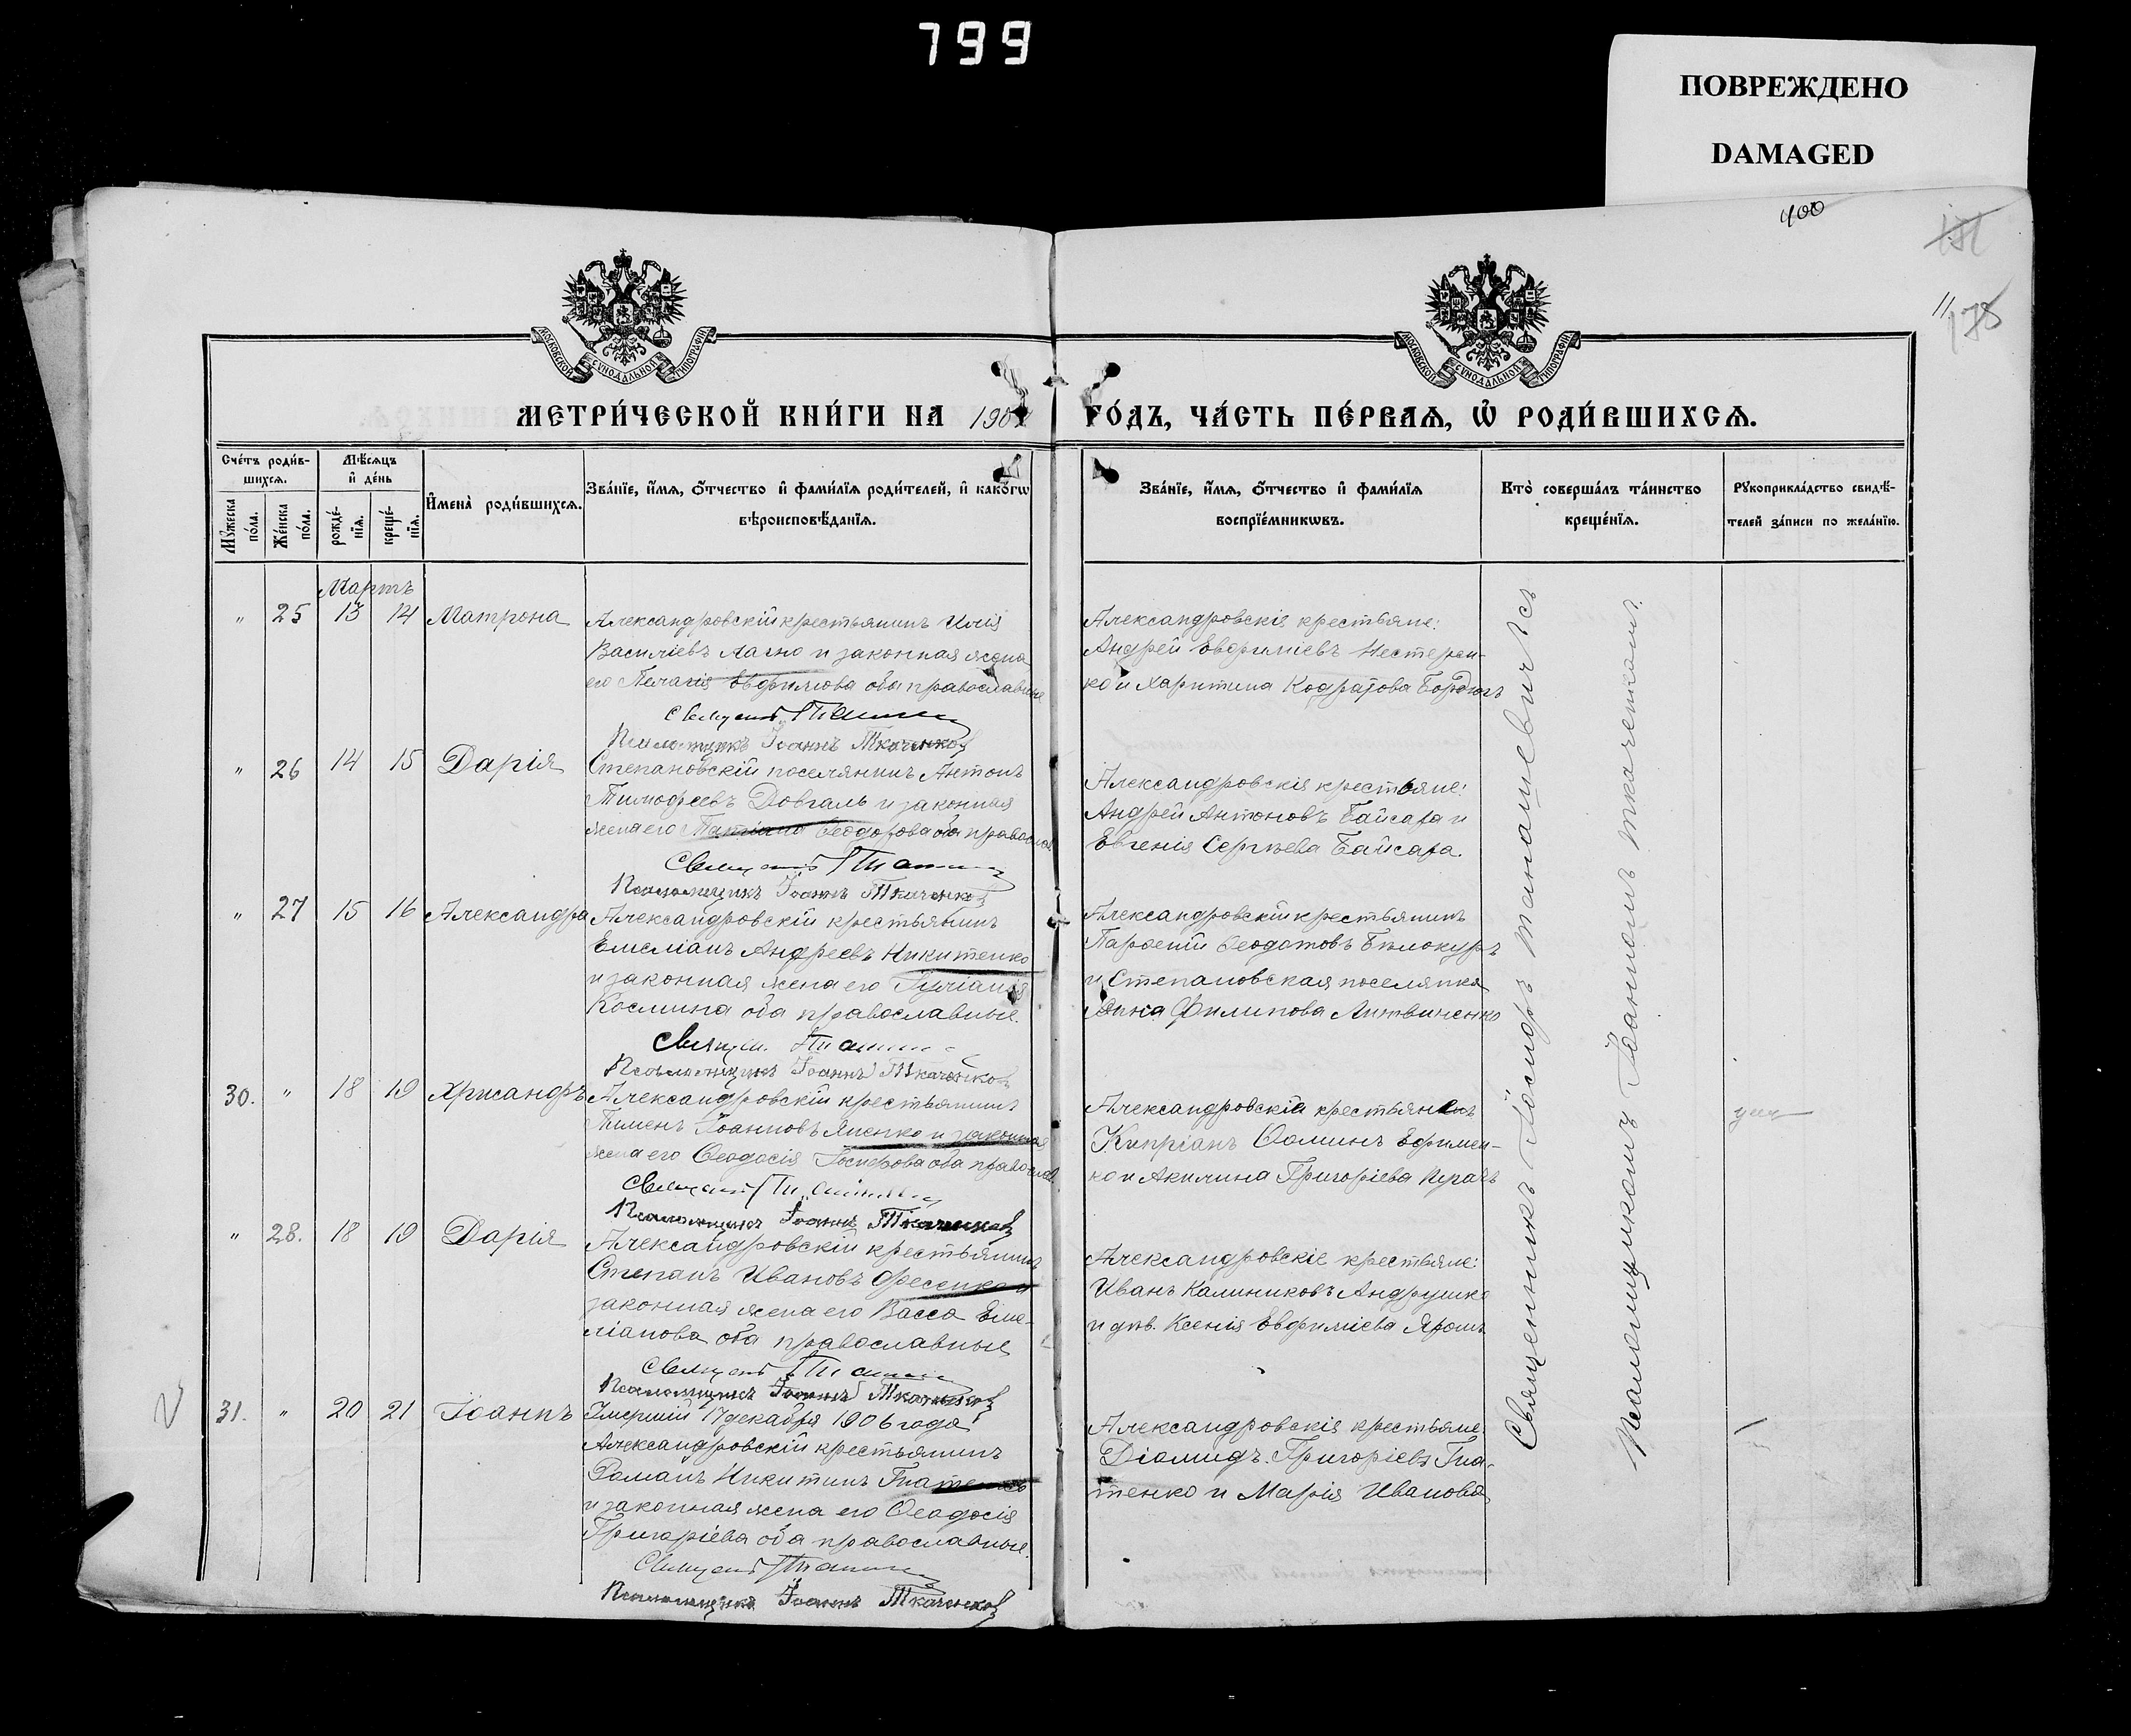 799
ПОВРЕЖДЕНО
DAMAGED
400
178
МОСКОВСКОЙ СѴНОДАЛЬНОЙ ТИПОГРАФІИ
МОСКОВСКОЙ СѴНОДАЛЬНОЙ ТИПОГРАФІИ
МЕТРИ́ЧЕСКОЙ КНИ́ГИ НА 190
ГО́ДЪ, ЧА́СТЬ ПЕ́РВАѦ, Ѡ҆ РОДИ́ВШИХСѦ.
Сче́тъ роди́в-
шихсѧ.
Мꙋ́жеска по́ла.
Же́нска по́ла.
Мѣ́сѧцъ
и҆ де́нь
рожде́-
нїѧ.
креще́-
нїѧ.
И҆мена̀ роди́вшихсѧ.
Зва́нїе, и҆́мѧ, ѻ҆́тчество и҆ фами́лїѧ роди́телей, и҆ како́гѡ
вѣроисповѣ́данїѧ.
Зва́нїе, и҆́мѧ, ѻ҆́тчество и҆ фами́лїѧ
воспрїе́мникѡвъ.
Кто̀ соверша́лъ та́инство
креще́нїѧ.
Рꙋкоприкла́дство свидѣ́-
телей за́писи по жела́нїю.
Мартъ
" 25 13 14 Матрона
Александровскій крестьянинъ Илія
Василіевъ Лагно и законная жена
его Пелагія Евфимова оба православные
Псаломщикъ Іоаннъ Ткаченко
Александровскія крестьяне:
Андрей Евфиміевъ Нестерен-
ко и Харитина Кодратова Бордюгъ
" 26 14 15 Дарія
Степановскій поселянинъ Антонъ
Тимофеевъ Довгаль и законная
жена его Татіана Ѳеодорова оба православ.
Псаломщикъ Іоаннъ Ткаченко
Александровскія крестьяне:
Андрей Антоновъ Байсара и
Евгенія Сергѣева Байсара.
" 27 15 16 Александра
Александровскій крестьянинъ
Емеліанъ Андреевъ Никитенко
и законная жена его Іуліанія
Космина оба православные.
Псаломщикъ Іоаннъ Ткаченко
Александровскій крестьянинъ
Парѳеній Ѳеодотовъ Бѣлокуръ
и Степановская поселянка
Анна Филипова Литвиненко
30. " 18 19 Хрисанфъ
Александровскій крестьянинъ
Пименъ Іоанновъ Яценко и законная
жена его Ѳеодосія Іосифова оба православ.
Псаломщикъ Іоаннъ Ткаченко
Александровскія крестьянинъ
Кипріанъ Ѳоминъ Ефимен-
ко и Акилина Григоріева Пугачъ
" 28. 18 19 Дарія
Александровскій крестьянинъ
Степанъ Ивановъ Фесенко и
законная жена его Васса Еме-
ліанова оба православные
Псаломщикъ Іоаннъ Ткаченко
Александровскіе крестьяне:
Иванъ Калиниковъ Андрушко
и дѣв. Ксенія Евфиміева Ярошъ
31. " 20 21 Іоаннъ
Умершій 17 декабря 1906 года
Александровскій крестьянинъ
Романъ Никитинъ Гнатенко
и законная жена его Ѳеодосія
Григоріева оба православные.
Псаломщикъ Іоаннъ Ткаченко
Александровскія крестьяне:
Діомидъ Григоріевъ Гна-
тенко и Марія Иванова
Священникъ Іосифъ Танашевичъ съ
псаломщикомъ Іоанномъ Ткаченкомъ.